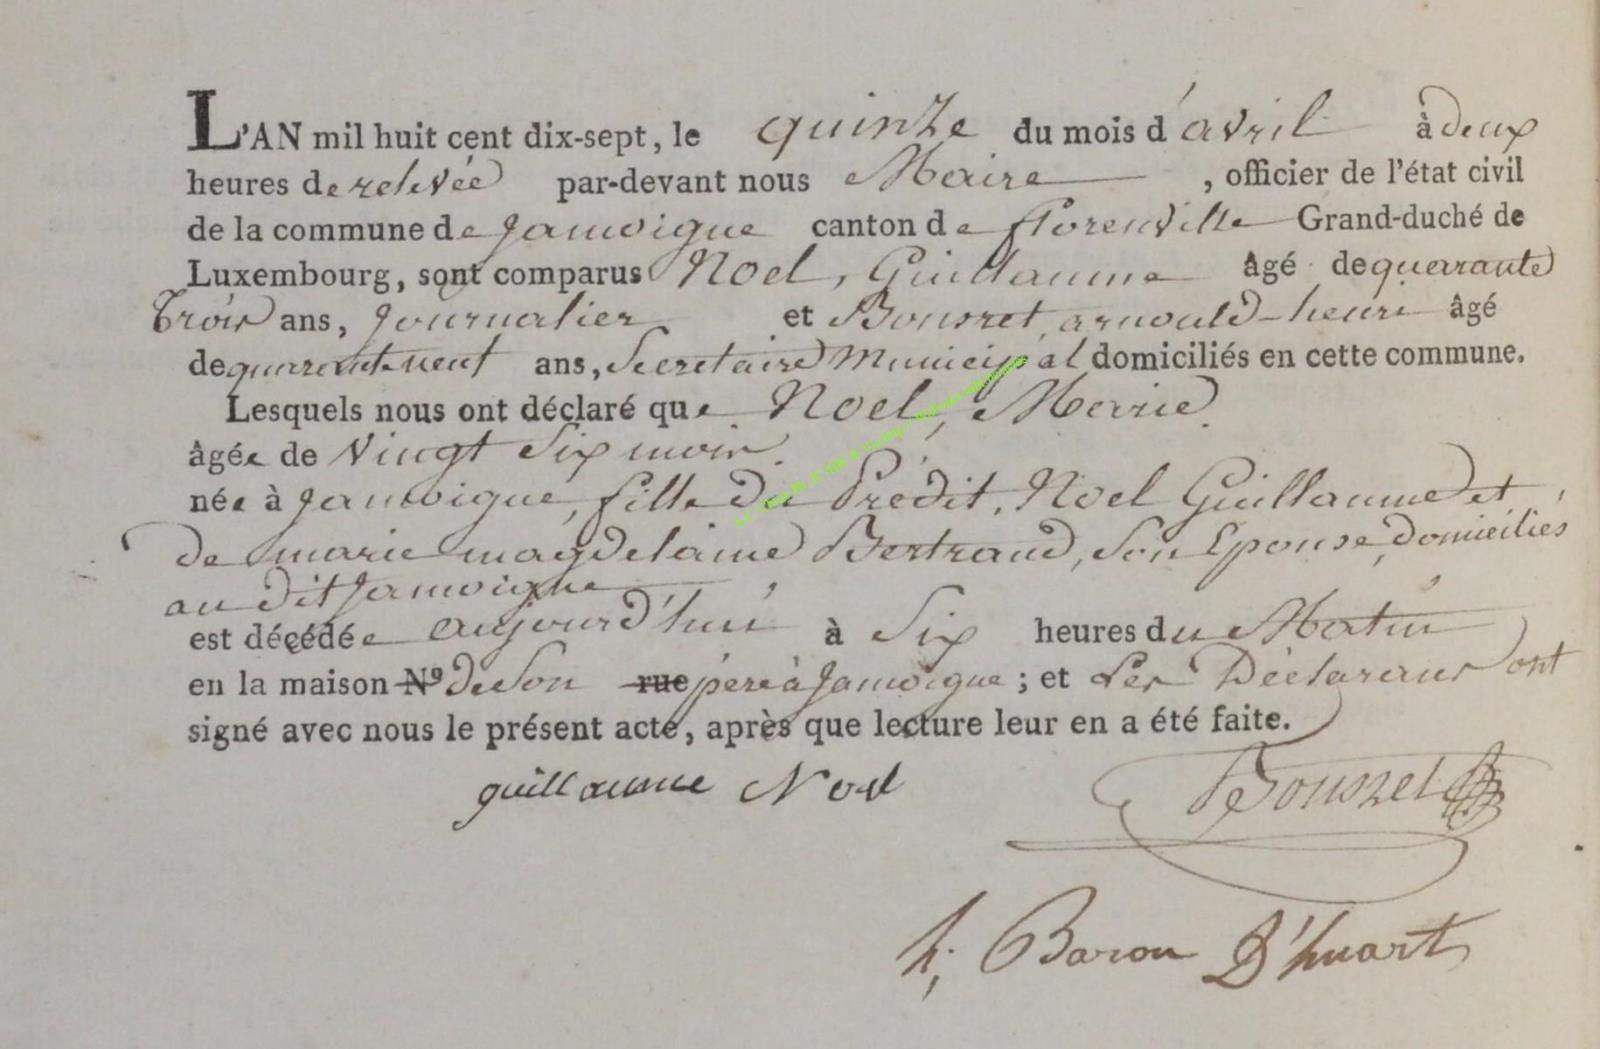 L'AN mil huit cent dix-sept, le quinze du mois d'avril à deux
heures de relevée par-devant nous Maire, officier de l'état civil
de la commune de Jamoigne canton de florenville Grand-duché de
Luxembourg, sont comparus Noel, Guillaume âgé de quarante
Trois ans, Journalier et Bousret, arnould-henri âgé
de quarante neuf ans, Secretaire Municipal domiciliés en cette commune.
Lesquels nous ont déclaré que Noel, Marie
âgée de Vingt Six mois.
née à Jamoigne, fille du Prédit, Noel Guillaume et
de marie magdelaine Bertrand, Son Epouse, domiciliés
au dit Jamoigne
est décédée aujourd'hui à Six heures du Matin
en la maison N.º de Son rue père à Jamoigne ; et Les Déclarans ont
signé avec nous le présent acte, après que lecture leur en a été faite.
guillaume Noel Bousret
h; Baron D'huart